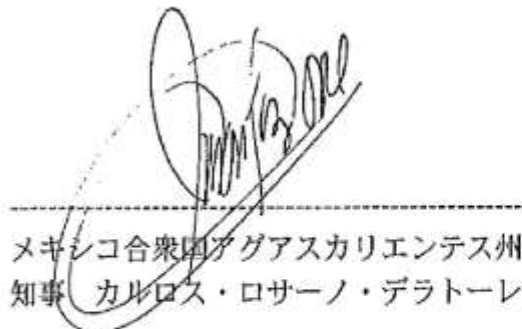 メキシコ合衆国アグアスカリエンテス州
知事 カルロス・ロサーノ・デラトーレ